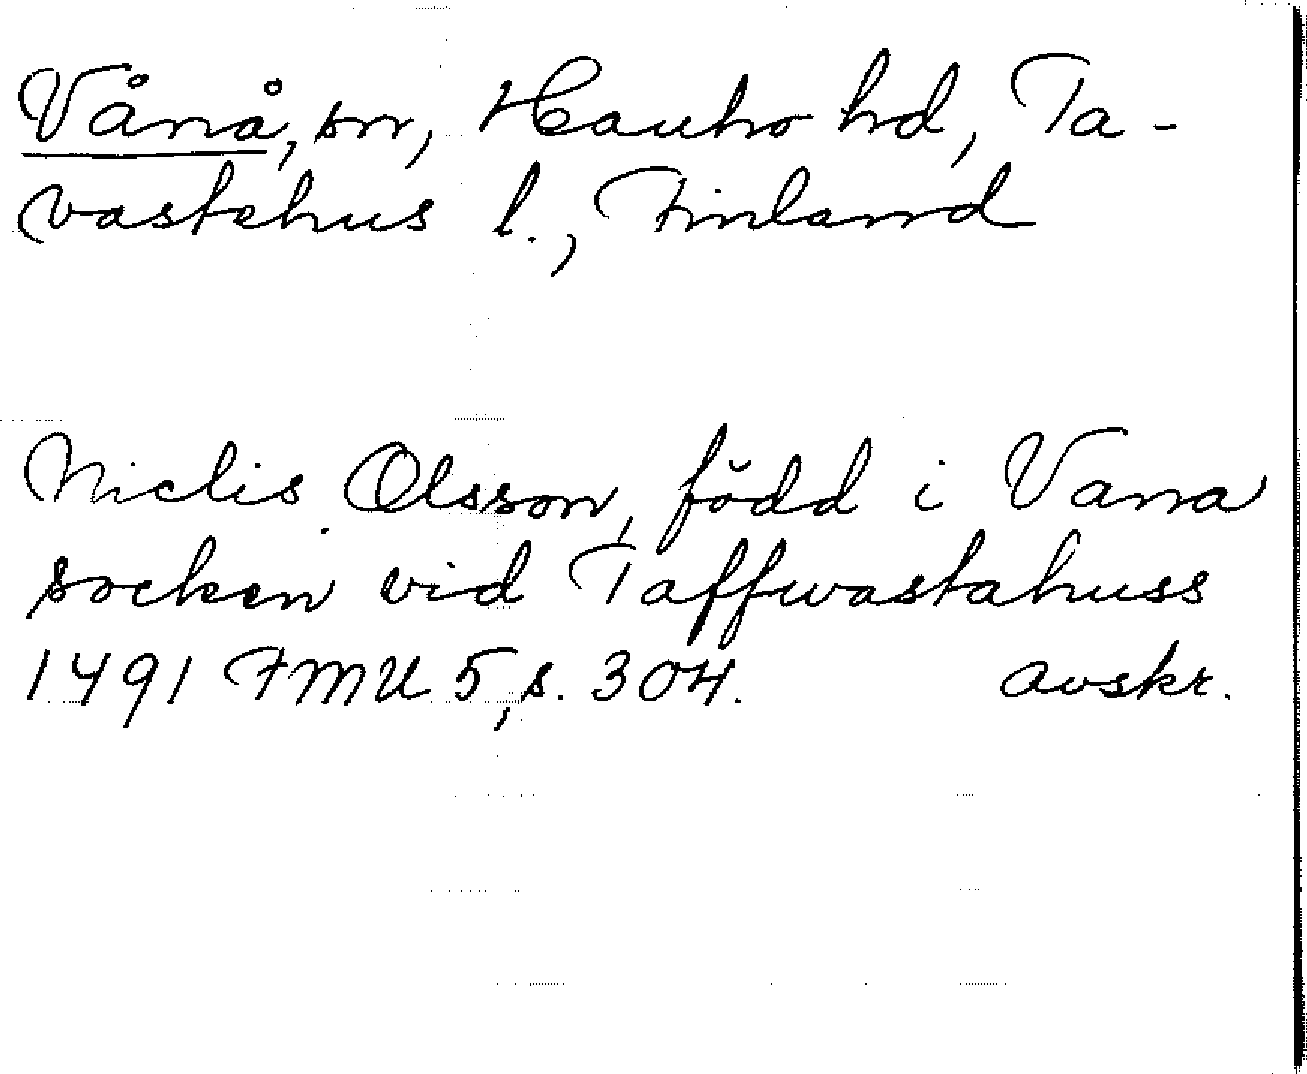 Vånå, sn, Hauho hd, Ta-
vastehus l., Finland
Niclis Olsson, född i Vana
socken vid Taffwastahuss
1491 FMU 5, s. 304. avskr.